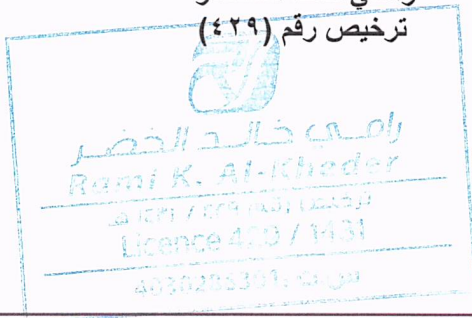 ترخيص رقم (٤٢٩)
رامي خالد الخضر
Rami K. Al-Kheder
ترخيص رقم ٤٢٩ / ١٤٣١ هـ
Licence 429 / 1431